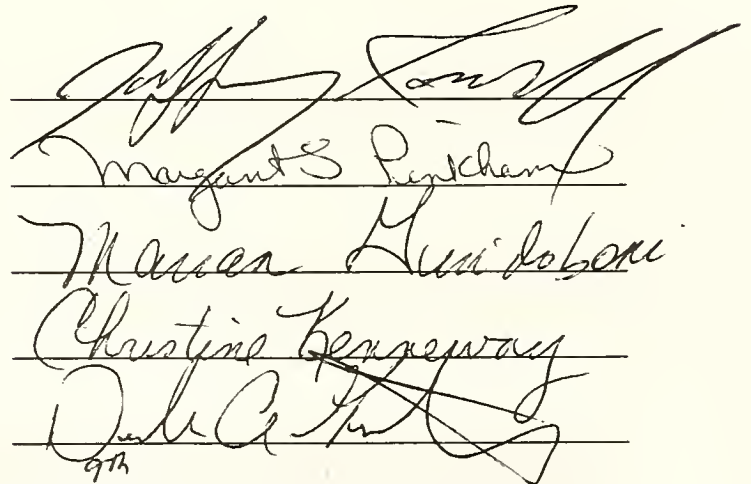 Jeffrey
Margaret S Pinkham
Marian Guidoboni
Christine Kenneway
A
9th